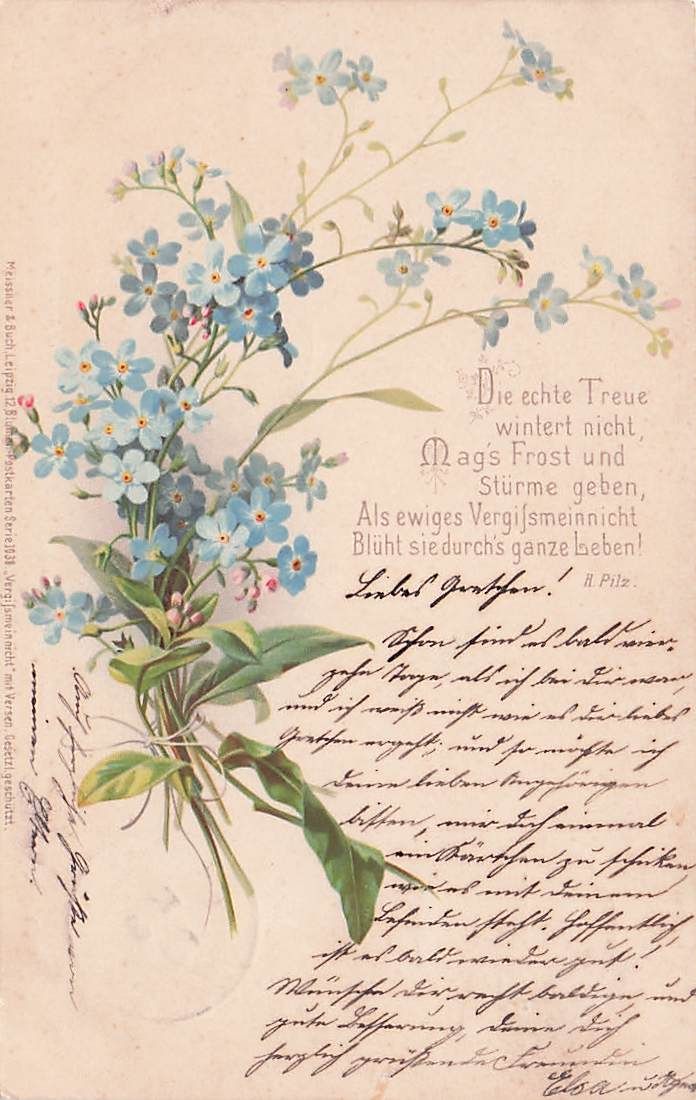 Die echte Treue
wintert nicht,
Mag's Frost und
Stürme geben,
Als ewiges Vergiſsmeinnicht
Blüht sie durch's ganze Leben!
H. Pilz.
Liebes Gretchen!
Schon sind es bald vier-
zehn Tage, als ich bei dir war,
und ich weiß nicht wie es dir liebes
Gretchen ergeht; und so möchte ich
deine lieben Angehörigen
bitten, mir doch einmal
ein Kärtchen zu schicken
wie es mit deinem
Befinden steht. Hoffentlich
ist es bald wieder gut!
Wünsche dir recht baldige und
gute Besserung, deine dich
herzlich grüßende Freundin
Elsa u.
Auch herzliche Grüße von
meinen Eltern.
Meissner & Buch, Leipzig. 12 Blumen-Postkarten Serie 1038 „Vergiſsmeinnicht" mit Versen. Gesetzl. geschützt.